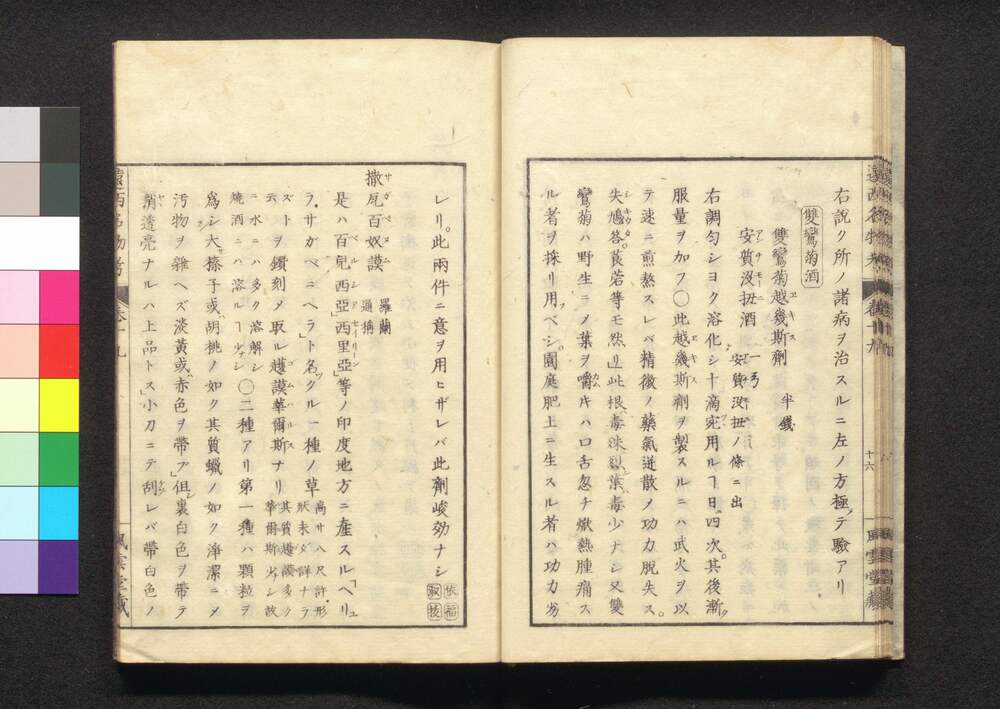 右說ク所ノ諸病ヲ治スルニ左ノ方極テ驗アリ
雙鸞菊酒
雙鸞菊越幾斯劑 半錢
安質没扭酒 一弓 安質没扭ノ條ニ出
右調勻シヨク溶化シ十滴宛用ル﹁日ニ四次其後漸ク
服量ヲ加フ〇此越幾斯劑ヲ製スルニハ武火ヲ以
テ速ニ煎熬スレバ精微ノ藥氣逬散メ功力脫失ス。
失鳩答。莨菪等モ然リ」此根ハ毒沫烈シ葉ハ毒少ナシ又雙
鸞菊ハ野生ニノ葉ヲ嚼ムキハ口舌忽チ焮熱腫痛ス
ル者ヲ採リ用ベシ。園庭肥土ニ生スル者ハ功力劣
十六
風雲堂藏
レリ。此兩件ニ意ヲ用ヒザレバ此劑峻効ナシ 依福 淑按
撒瓦百奴謨 羅蘭 通稱
是ハ百兒西亞」西里亞」等ノ印度地方ニ產スル「ヘリュ
ラ・サガペニヘラ」ト名クル一種ノ草 高サ八尺許形狀未ダ詳ナラ
ズトヲ鑽刻メ取ル護謨華爾斯ナリ 其質護謨多ク華爾斯少シ故
ニ水ニハ多ク溶解シ燒酒ニハ溶ル﹁少シ 〇二種アリ第一種ハ顆粒ヲ
爲シ大サ榛子或ハ胡桃ノ如ク其質蠟ノ如ク淨潔ニメ
汚物ヲ雜ヘズ淡黃或ハ赤色ヲ帶ブ」但シ裏白色ヲ帶テ
稍透亮ナルハ上品トス」小刀ニテ刮レバ帶白色ノ
遠西名物考
卷十九
風雲堂藏